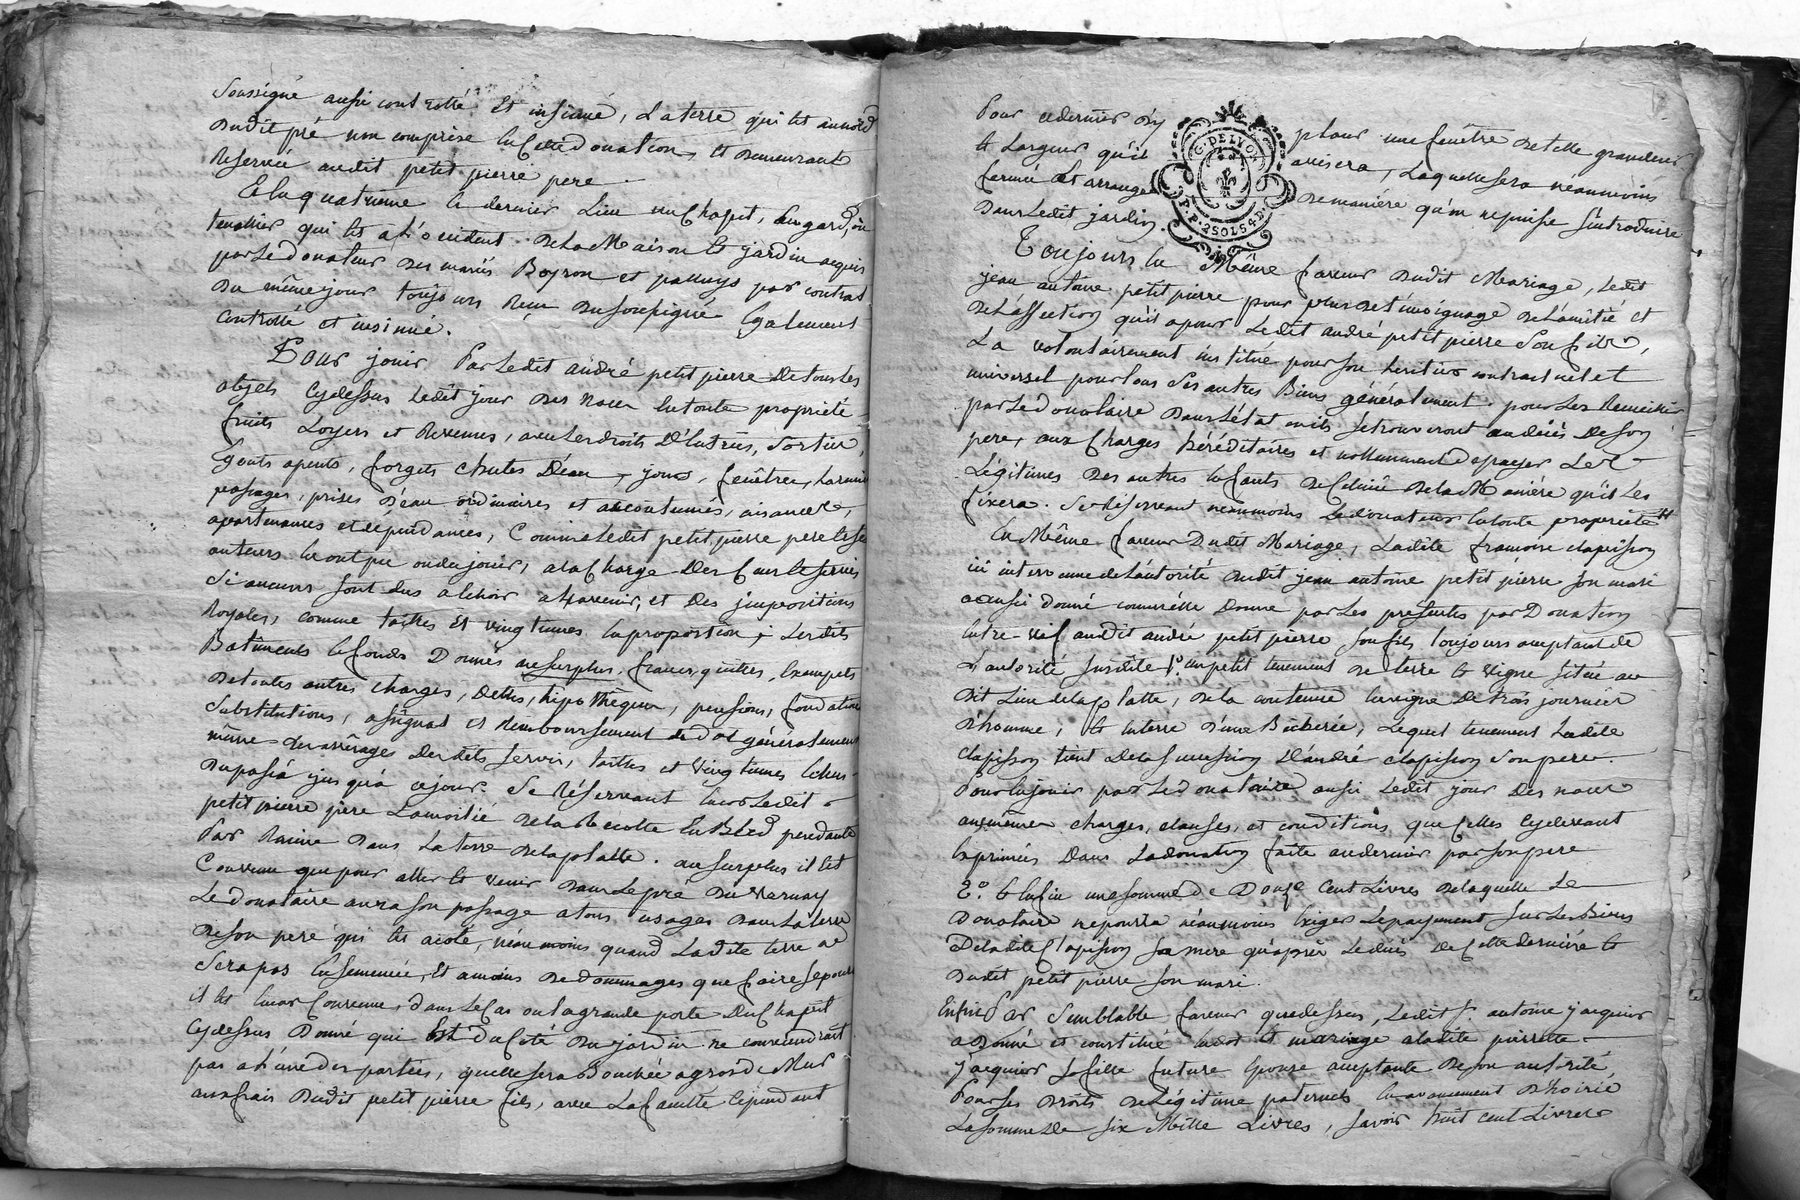 Soussigné aussi controllé Et insinué, La terre qui est au nord
Dudit pré non comprise En Cette donation, Et demeurant
Reservée audit petit pierre pere.
En quatrieme Et dernier Lieu un Chapit, hengard, ou
tenallier qui est a L'occident De La Maison Et jardin acquis
par Le donateur Des mariés Boyron et par contrat
Du même jour toujours Reçu Du soussigné Egalement
Controllé et insinué.
Pour jouir Par Ledit andré petit pierre De tous Les
objets Cydessus Ledit jour Des noces En toute propriété
fruits Loyers et Revenus, avec Les droits D'Entrées, Sorties,
Egouts apents, forgets chutes D'eau, jours, fenêtres,
passages, prises D'eau ordinaires et accoutumés, aisances,
apartenances et dependances, Comme Ledit petit pierre pere et ses
auteurs En ont pu ou du jouir, a la Charge Des Cens Et servis
Si aucuns sont dus a Echoir a L'avenir, et Des impositions
Royales, comme tailles Et vingtiemes En proportion ; Lesdits
Batiments Et fonds Donnés au surplus, francs, quittes, Exempts
De toutes autres charges, Dettes, hipothèques, pensions, fondations
Substitutions, assignat et Remboursement de Dot généralement
même Des arrérages Desdits servis, tailles et vingtiemes Echus
Du passé jusqu'à ce jour. Se Réservant Encor Ledit
petit pierre père La moitié De la Récolte En Bled pendante
Par Racine Dans La terre De la platte. au surplus il Est
Convenu que pour aller Et venir Dans Le pré Du Vernay
Le donataire aura son passage a tous usages Dans La terre
De son pere qui Est a coté, néanmoins quand Ladite terre ne
Sera pas Ensemencée, Et a moins De dommages que faire se pourra
il Est Encor Convenu, Dans Le Cas ou La grande porte Du Chapit
Cydessus Donné qui Est Du Coté Du jardin ne conviendrait
pas a L'une Des parties, qu'elle sera Bouchée a gros De Mur
aux frais Dudit petit pierre fils, avec La faculté Cependant
Pour ce dernier D'y placer une fenêtre De telle grandeur
Et Largeur qu'il avisera, Laquelle sera néanmoins
fermée Et arrangée De manière qu'on ne puisse s'introduire
Dans Ledit jardin.
G. DE LYON
P.P. 2 SOLS 4 D.
Toujours En Même faveur Dudit Mariage, Ledit
jean antoine petit pierre pour plus De témoignage De L'amitié et
De L'affection qu'il a pour Ledit andré petit pierre Son fils,
La volontairement institué pour son héritier contractuel et
universel pour tous Ses autres Biens généralement pour Les Recueillir
par Le donataire Dans L'état ou ils se trouveront au décès De son
pere, aux Charges héréditaires et nottamment De payer Les
Légitimes Des autres Enfants De Celui De la Manière qu'il Les
fixera. Se Réservant néanmoins Le donateur En toute propriété #
En Même faveur Dudit Mariage, Ladite françoise clapisson
ici intervenue de L'autorité Dudit jean antoine petit pierre son mari
a aussi donné comme elle Donne par Les présentes par Donation
Entre vif audit andré petit pierre son fils toujours acceptant de
L'autorité susdite 1.º un petit tenement De terre Et vigne situé au
Dit Lieu de la platte, De la contenue En vigne De trois journées
D'homme, Et En terre D'une Bicherée, Lequel tenement Ladite
clapisson tient De la succession D'andré clapisson son pere.
Pour En jouir par Le Donataire aussi Ledit jour Des noces
aux mêmes charges, clauses, et conditions que Celles Cydevant
Exprimées Dans La donation faite au dernier par son pere
2.º Et Enfin une somme De Douze Cent Livres De laquelle Le
Donataire ne pourra néanmoins Exiger Le payement sur Les Biens
De Ladite Clapisson sa mere qu'après Le décès De Cette dernière Et
Dudit petit pierre son mari.
Enfin Par Semblable faveur que dessus, Ledit Sr. antoine jacquier
a Donné et constitué En dot Et mariage a Ladite pierrette
jacquier Sa fille future Epouse acceptante De son autorité,
Pour Ses Droits De Légitime paternels En avancement D'hoirie
La somme De Six Mille Livres, savoir huit cent Livres